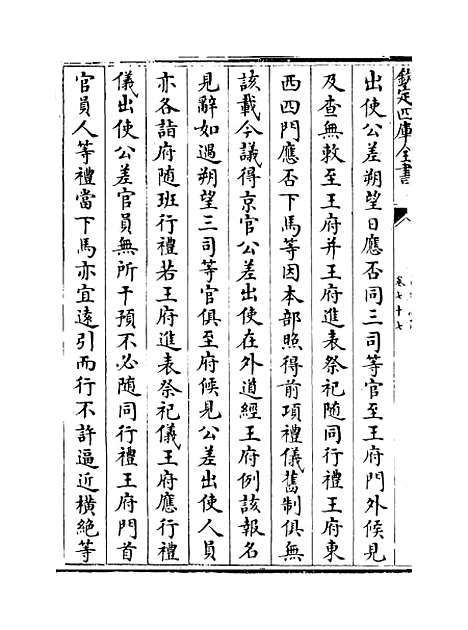 欽定四庫全書
卷七十七
出使公差朔望日應否同三司等官至王府門外候見
及查無敕至王府并王府進表祭祀隨同行禮王府東
西四門應否下馬等因本部照得前項禮儀舊制俱無
該載今議得京官公差出使在外道經王府例該報名
見辭如遇朔望三司等官俱至府候見公差出使人員
亦各詣府随班行禮若王府進表祭祀儀王府應行禮
儀出使公差官員無所干預不必随同行禮王府門首
官員人等禮當下馬亦宜遠引而行不許逼近橫絶等